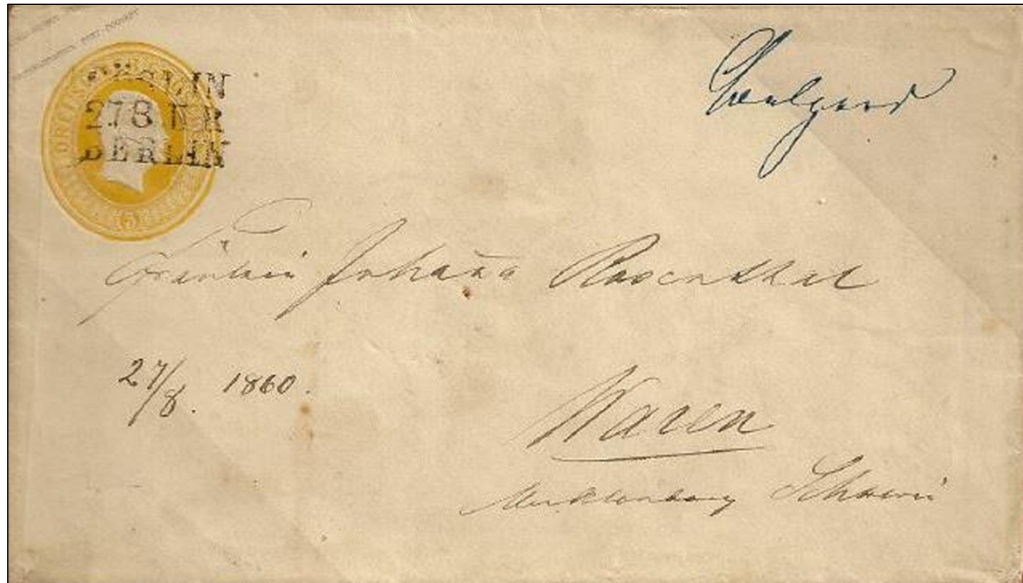 BERLIN
27 8 N R
BERLIN
DREI
3
Fräulein Johanna Rosenthal
27/8. 1860.
Waren
Mecklenburg Schwerin